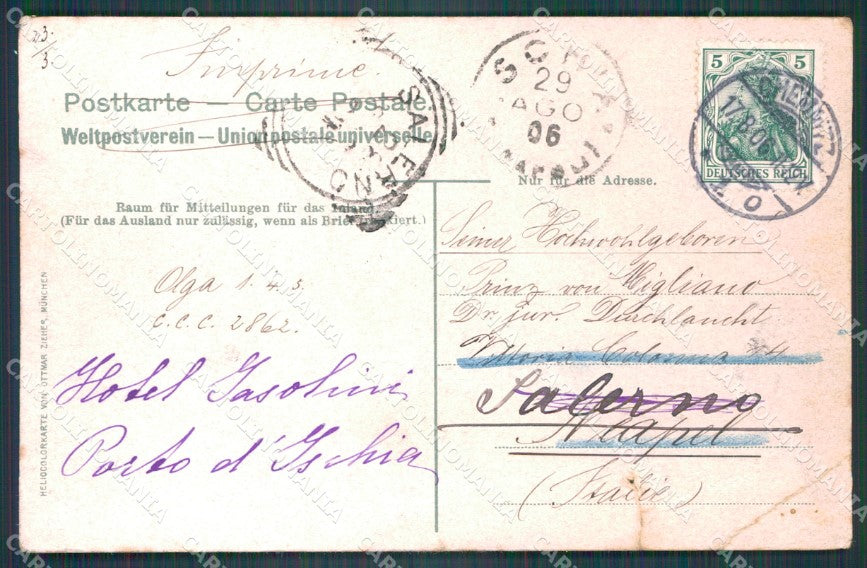 23.
3.
Imprimé.
Postkarte — Carte Postale.
Weltpostverein — Union postale universelle
Nur für die Adresse.
Raum für Mitteilungen für das Inland.
(Für das Ausland nur zulässig, wenn als Brief frankiert.)
5 5
DEUTSCHES REICH
CHEMNITZ
17.8.06
SALERNO
29
AGO
06
Olga 1.43.
C.C.C. 2862.
Hotel
Porto d'Ischia
Seiner Hochwohlgeboren
Prinz von Migliano
Dr. jur. Durchlaucht
Vittoria Colonna
Salerno
Neapel
(Italie)
HELIOCOLORKARTE VON OTTMAR ZIEHER, MÜNCHEN
CARTOLINOMANIA